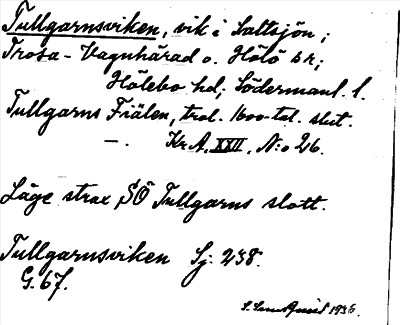 Tullgarnsviken, vik i Saltsjön;
Trosa-Vagnhärad o. Hölö snr;
Hölebo hd; Södermanl. l.
Tullgarns Fiälen, trol. 1600-tal. slut.
—. Kr.A. XXII, N:o 26.
Läge strax SÖ Tullgarns slott.
Tullgarnsviken Sj. 238.
G. 67.
1936.